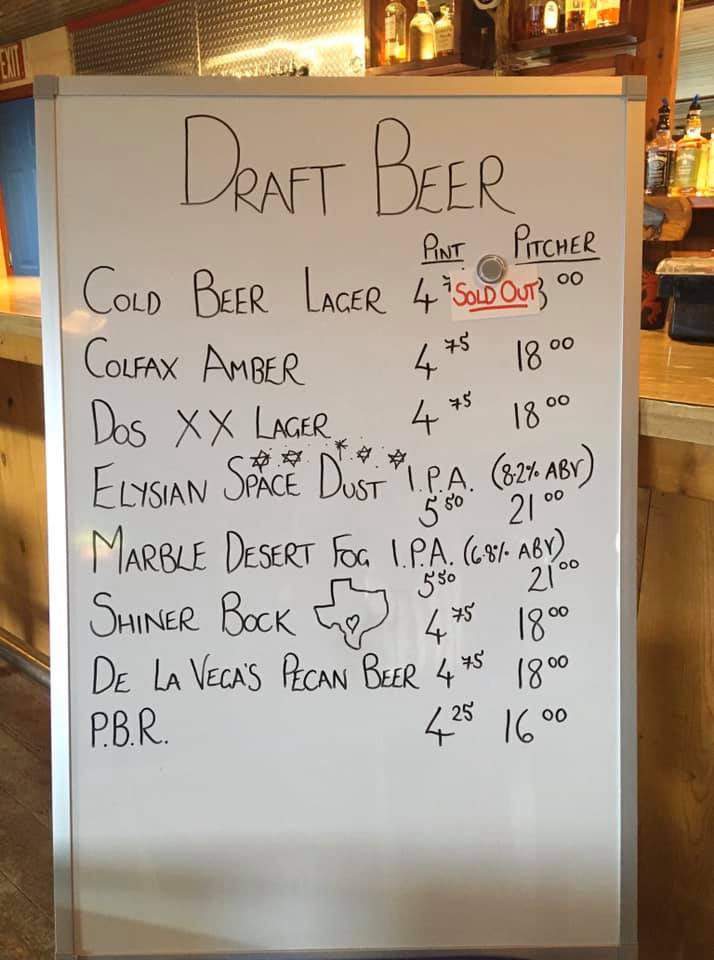 EXIT
DRAFT BEER
PINT PITCHER
COLD BEER LAGER 4 SOLD OUT 00
COLFAX AMBER 4 75 18 00
DOS XX LAGER 4 75 18 00
ELYSIAN SPACE DUST I.P.A. (8.2% ABV)
5 50 21 00
MARBLE DESERT FOG I.P.A. (6.8% ABV)
5 50 21 00
SHINER BOCK 4 75 18 00
DE LA VEGA'S PECAN BEER 4 75 18 00
P.B.R. 4 25 16 00